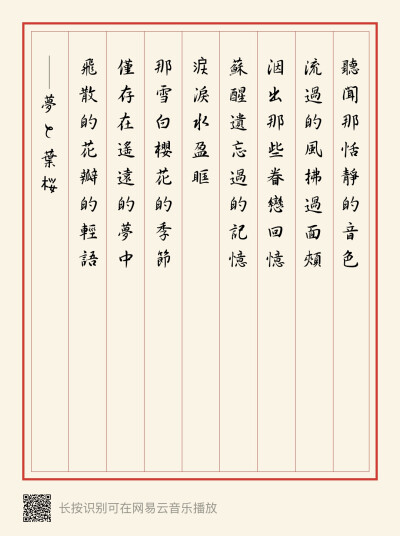 聽聞那恬靜的音色
流過的風拂過面頰
洇出那些眷戀回憶
蘇醒遺忘過的記憶
淚淚水盈眶
那雪白櫻花的季節
僅存在遙遠的夢中
飛散的花瓣的輕語
——夢と葉桜
长按识别可在网易云音乐播放